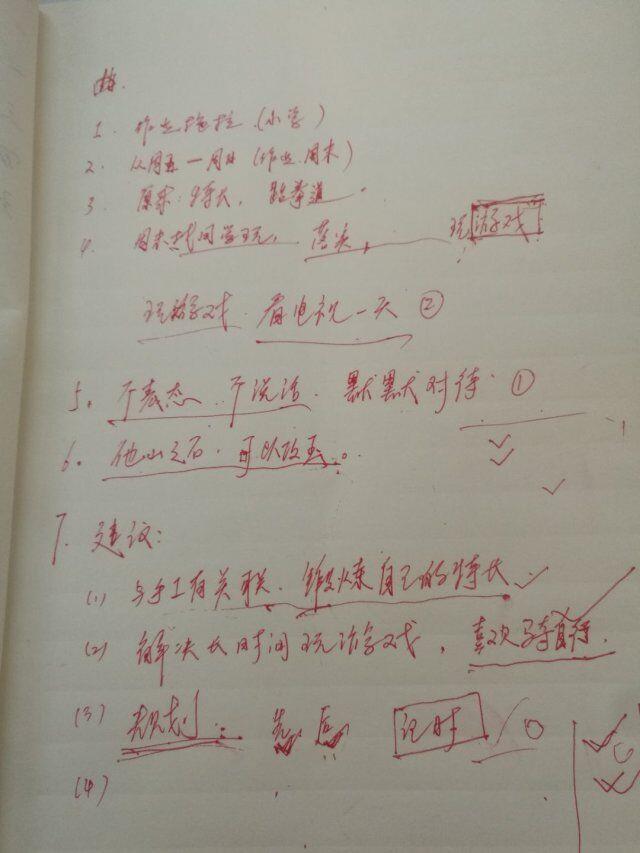 1. 作业拖拉 (小学)
2. 从周五一周日 (作业.周末)
3. 原来:特长, 跆拳道.
4. 周末找同学玩, 落尖, 玩游戏
玩游戏 看电视一天 ②
5. 不表态. 不说话. 默默对待 ①
6. 他山之石. 可以攻玉.
7. 建议:
(1) 与手工有关联. 锻炼自己的特长
(2) 解决长时间玩游戏, 喜欢骑自行.
(3) 规划: 先后 记时
(4)